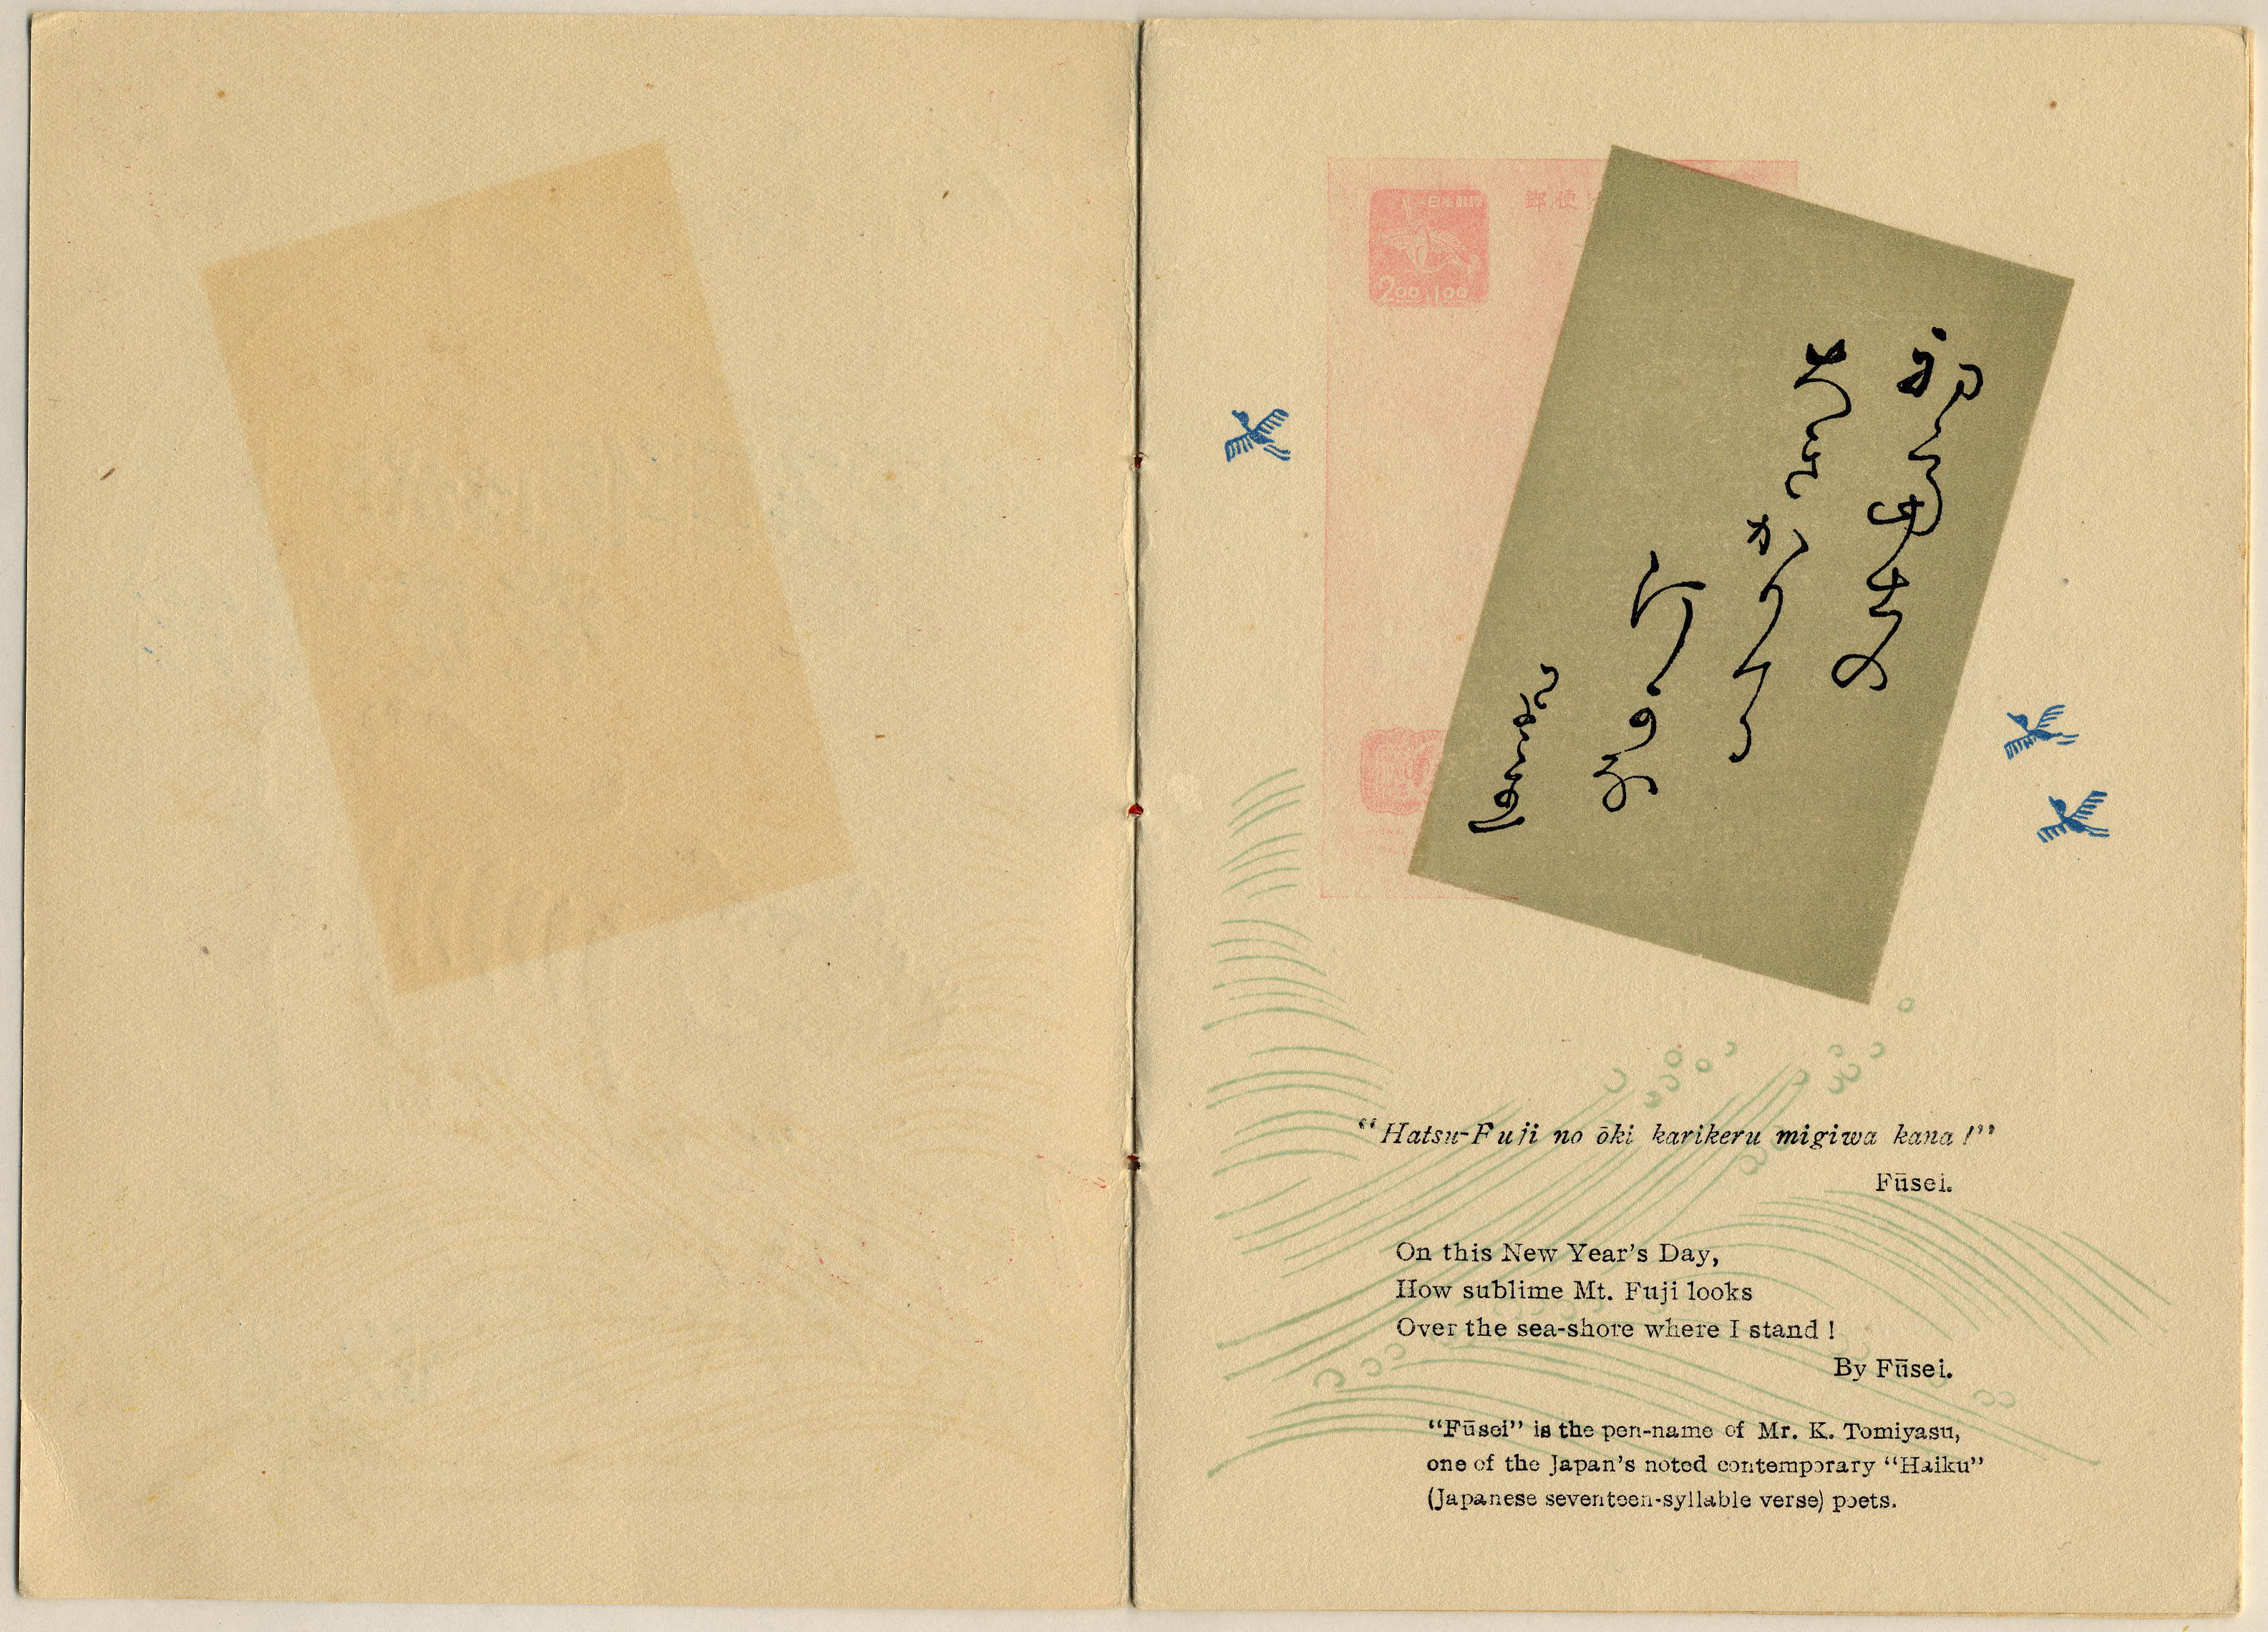 日本郵便
200+100
郵便
初富士の
大きかりける
汀かな
風生
“Hatsu-Fuji no ōki karikeru migiwa kana!”
Fūsei.
On this New Year's Day,
How sublime Mt. Fuji looks
Over the sea-shore where I stand!
By Fūsei.
“Fūsei” is the pen-name of Mr. K. Tomiyasu,
one of the Japan's noted contemporary “Haiku”
(Japanese seventeen-syllable verse) poets.